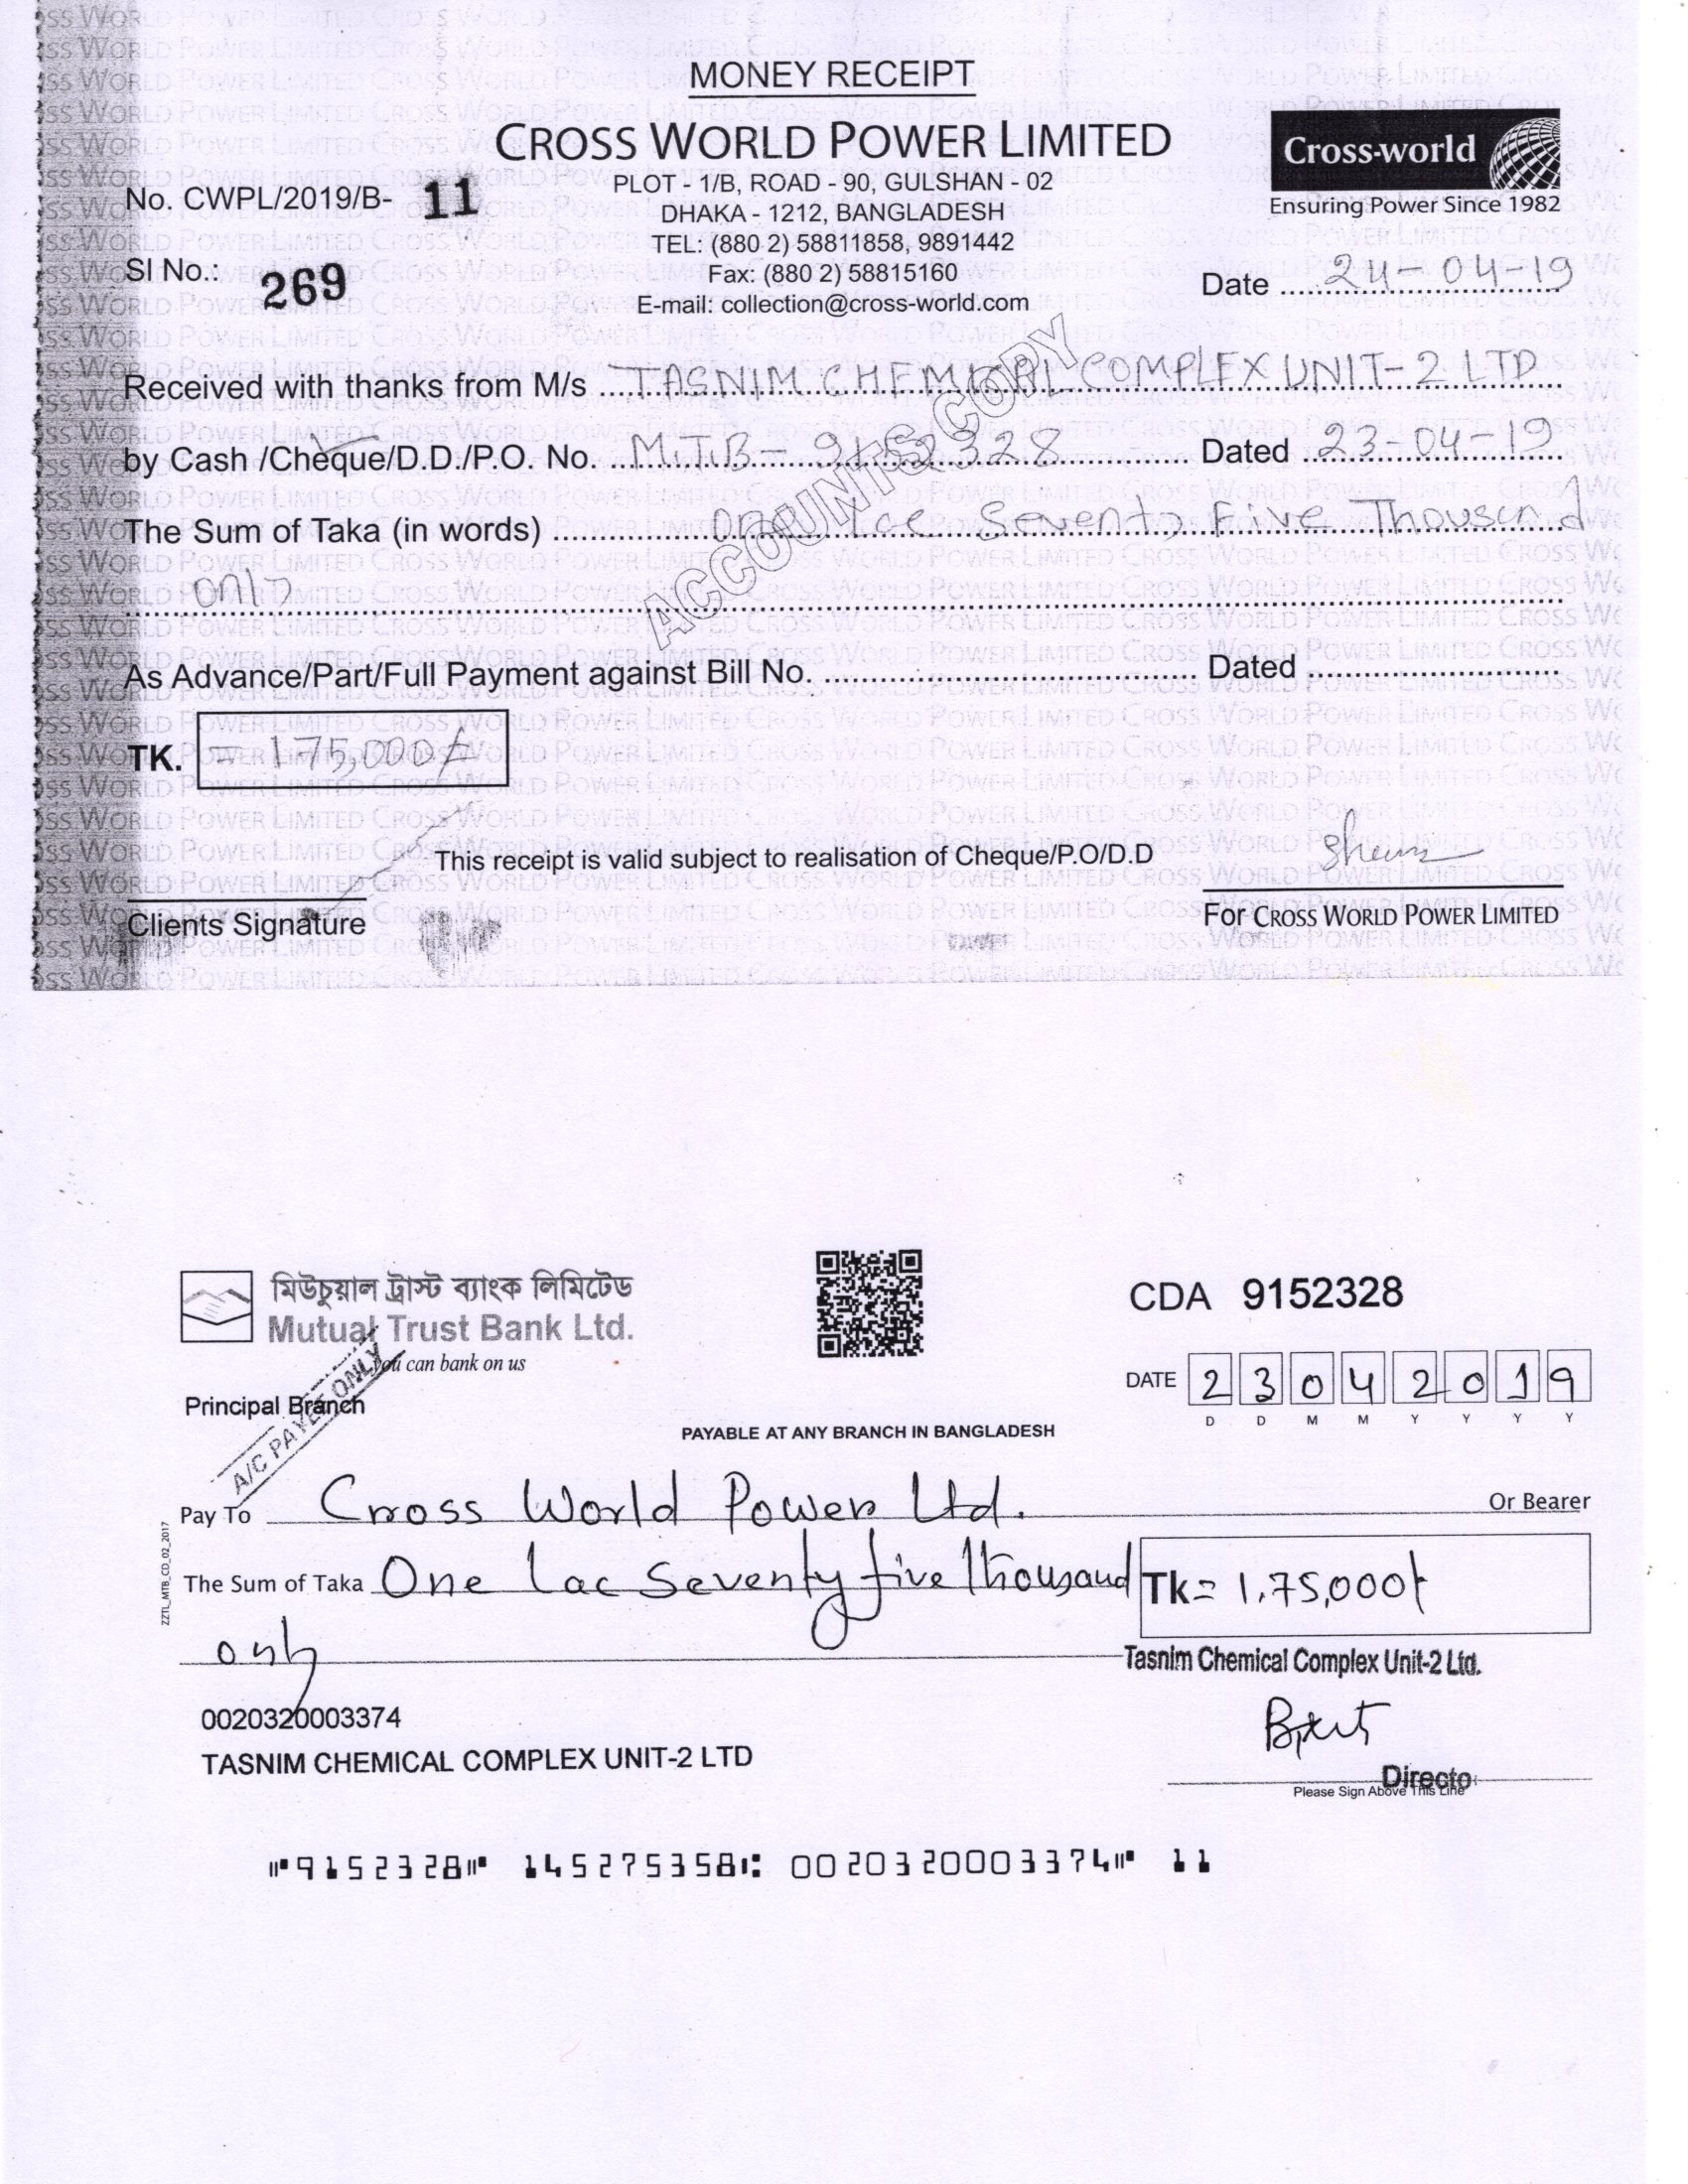 MONEY RECEIPT
CROSS WORLD POWER LIMITED
Cross-world
Ensuring Power Since 1982
No. CWPL/2019/B- 11
PLOT - 1/B, ROAD - 90, GULSHAN - 02
DHAKA - 1212, BANGLADESH
TEL: (880 2) 58811858, 9891442
Sl No.: 269
Fax: (880 2) 58815160
E-mail: collection@cross-world.com
Date 24-04-19
Received with thanks from M/s TASNIM CHEMICAL COMPLEX UNIT-2 LTD
by Cash /Cheque/D.D./P.O. No. MTB- 9152328 Dated 23-04-19
The Sum of Taka (in words) One Lac Seventy Five Thousand
only
ACCOUNTS COPY
As Advance/Part/Full Payment against Bill No. Dated
TK. = 1,75,000/=
This receipt is valid subject to realisation of Cheque/P.O/D.D
Clients Signature
For CROSS WORLD POWER LIMITED
মিউচুয়াল ট্রাস্ট ব্যাংক লিমিটেড
Mutual Trust Bank Ltd.
you can bank on us
Principal Branch
A/C PAYEE ONLY
CDA 9152328
DATE 2 3 0 4 2 0 1 9
D D M M Y Y Y Y
PAYABLE AT ANY BRANCH IN BANGLADESH
Pay To Cross World Power Ltd. Or Bearer
The Sum of Taka One Lac Seventy five Thousand
only
Tk= 1,75,000/-
ZZTL_MTB_CD_02_2017
Tasnim Chemical Complex Unit-2 Ltd.
0020320003374
TASNIM CHEMICAL COMPLEX UNIT-2 LTD
Director
Please Sign Above This Line
⑈9152328⑈ 145275358⑆ 0020320003374⑈ 11